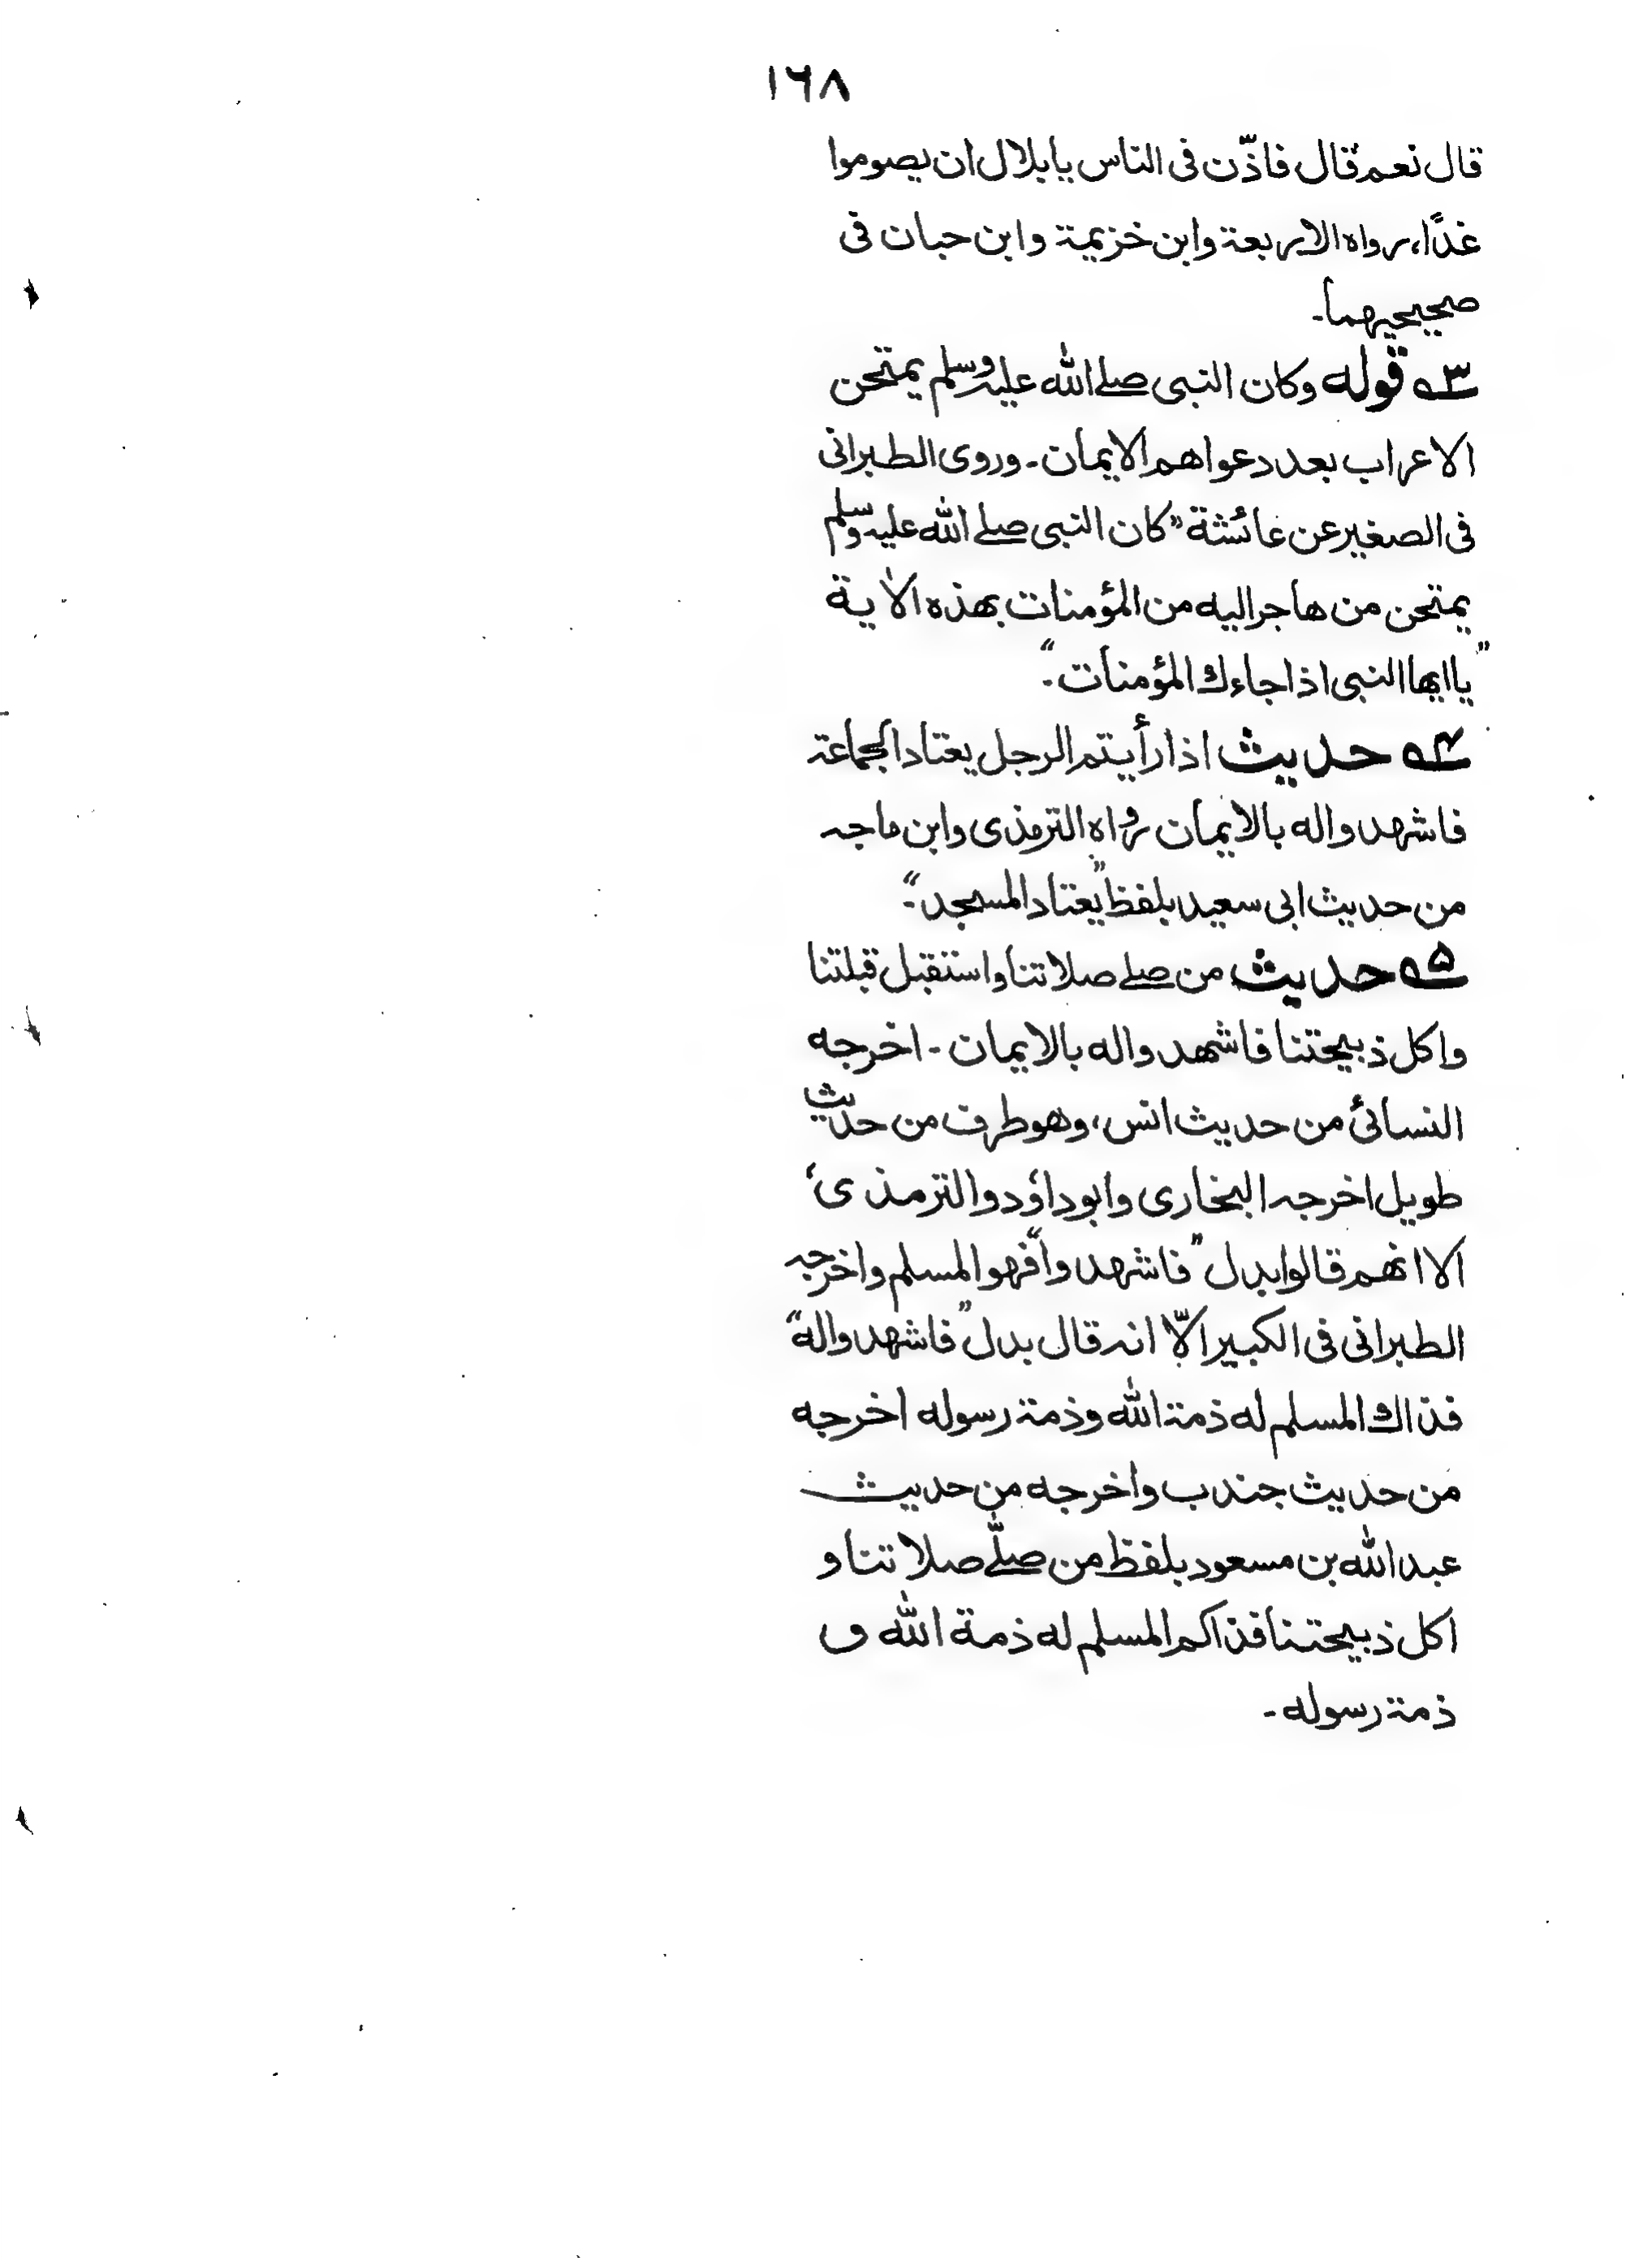 ١٦٨
قال نعم قال فاذّن فى الناس يا بلال ان يصوموا
غدًا، رواه الاربعة وابن خزيمة وابن حبان فى
صحيحيهما۔
٥٣ قوله وكان النبى صلے الله عليه وسلم يمتحن
الاعراب بعد دعواهم الايمان۔ وروى الطبرانى
فى الصغير عن عائشة ”كان النبى صلے الله عليه وسلم
يمتحن من هاجر اليه من المؤمنات بهذه الاٰية
”يا ايها النبى اذا جاءك المؤمنات“۔
٥٤ حديث اذا رأيتم الرجل يعتاد الجماعة
فاشهدوا له بالايمان رواه الترمذى وابن ماجه
من حديث ابى سعيد بلفظ ”يعتاد المسجد“۔
٥٥ حديث من صلے صلاتنا واستقبل قبلتنا
واكل ذبيحتنا فاشهدوا له بالايمان۔ اخرجه
النسائى من حديث انس، وهو طرف من حديث
طويل اخرجه البخارى وابو داؤد والترمذى،
الا انهم قالوا بدل ”فاشهدوا“ فهو المسلم واخرجه
الطبرانى فى الكبير الّا انه قال بدل ”فاشهدوا له“
فذاك المسلم له ذمة الله وذمة رسوله اخرجه
من حديث جندب واخرجه من حديث
عبد الله بن مسعود بلفظ من صلّے صلاتنا و
اكل ذبيحتنا فذاكم المسلم له ذمة الله و
ذمة رسوله۔